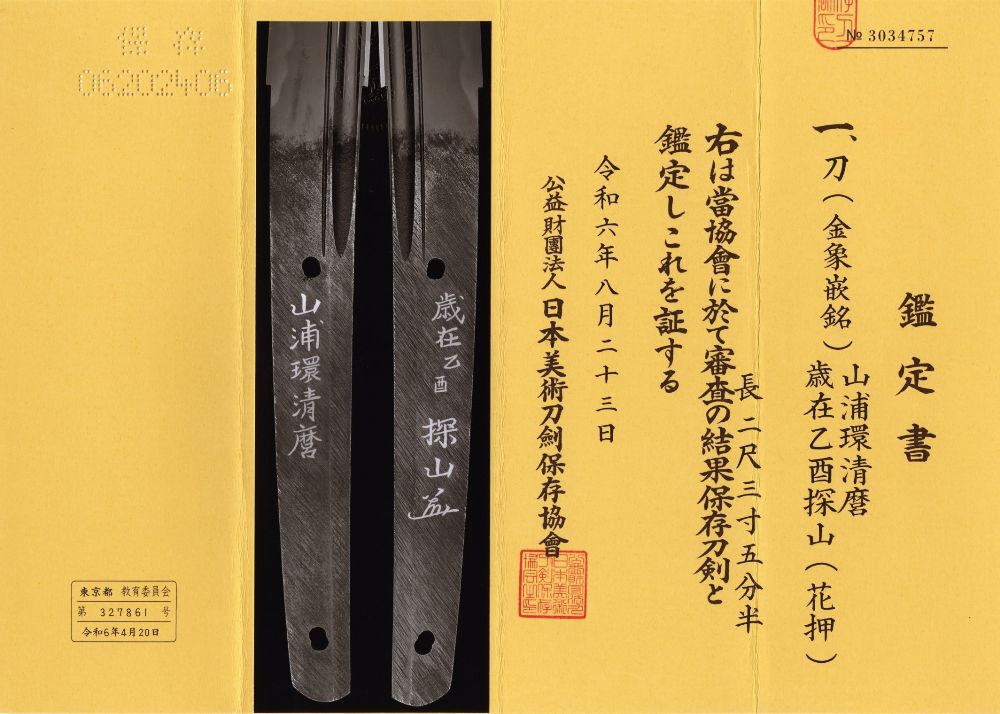 № 3034757
鑑定書
一、刀(金象嵌銘)山浦環清麿
歳在乙酉探山(花押)
長二尺三寸五分半
右は當協會に於て審査の結果保存刀剣と
鑑定しこれを証する
令和六年八月二十三日
公益財團法人日本美術刀劍保存協會
歳在乙酉 探山
山浦環清麿
保存
06202406
東京都 教育委員会
第 327861 号
令和6年4月20日